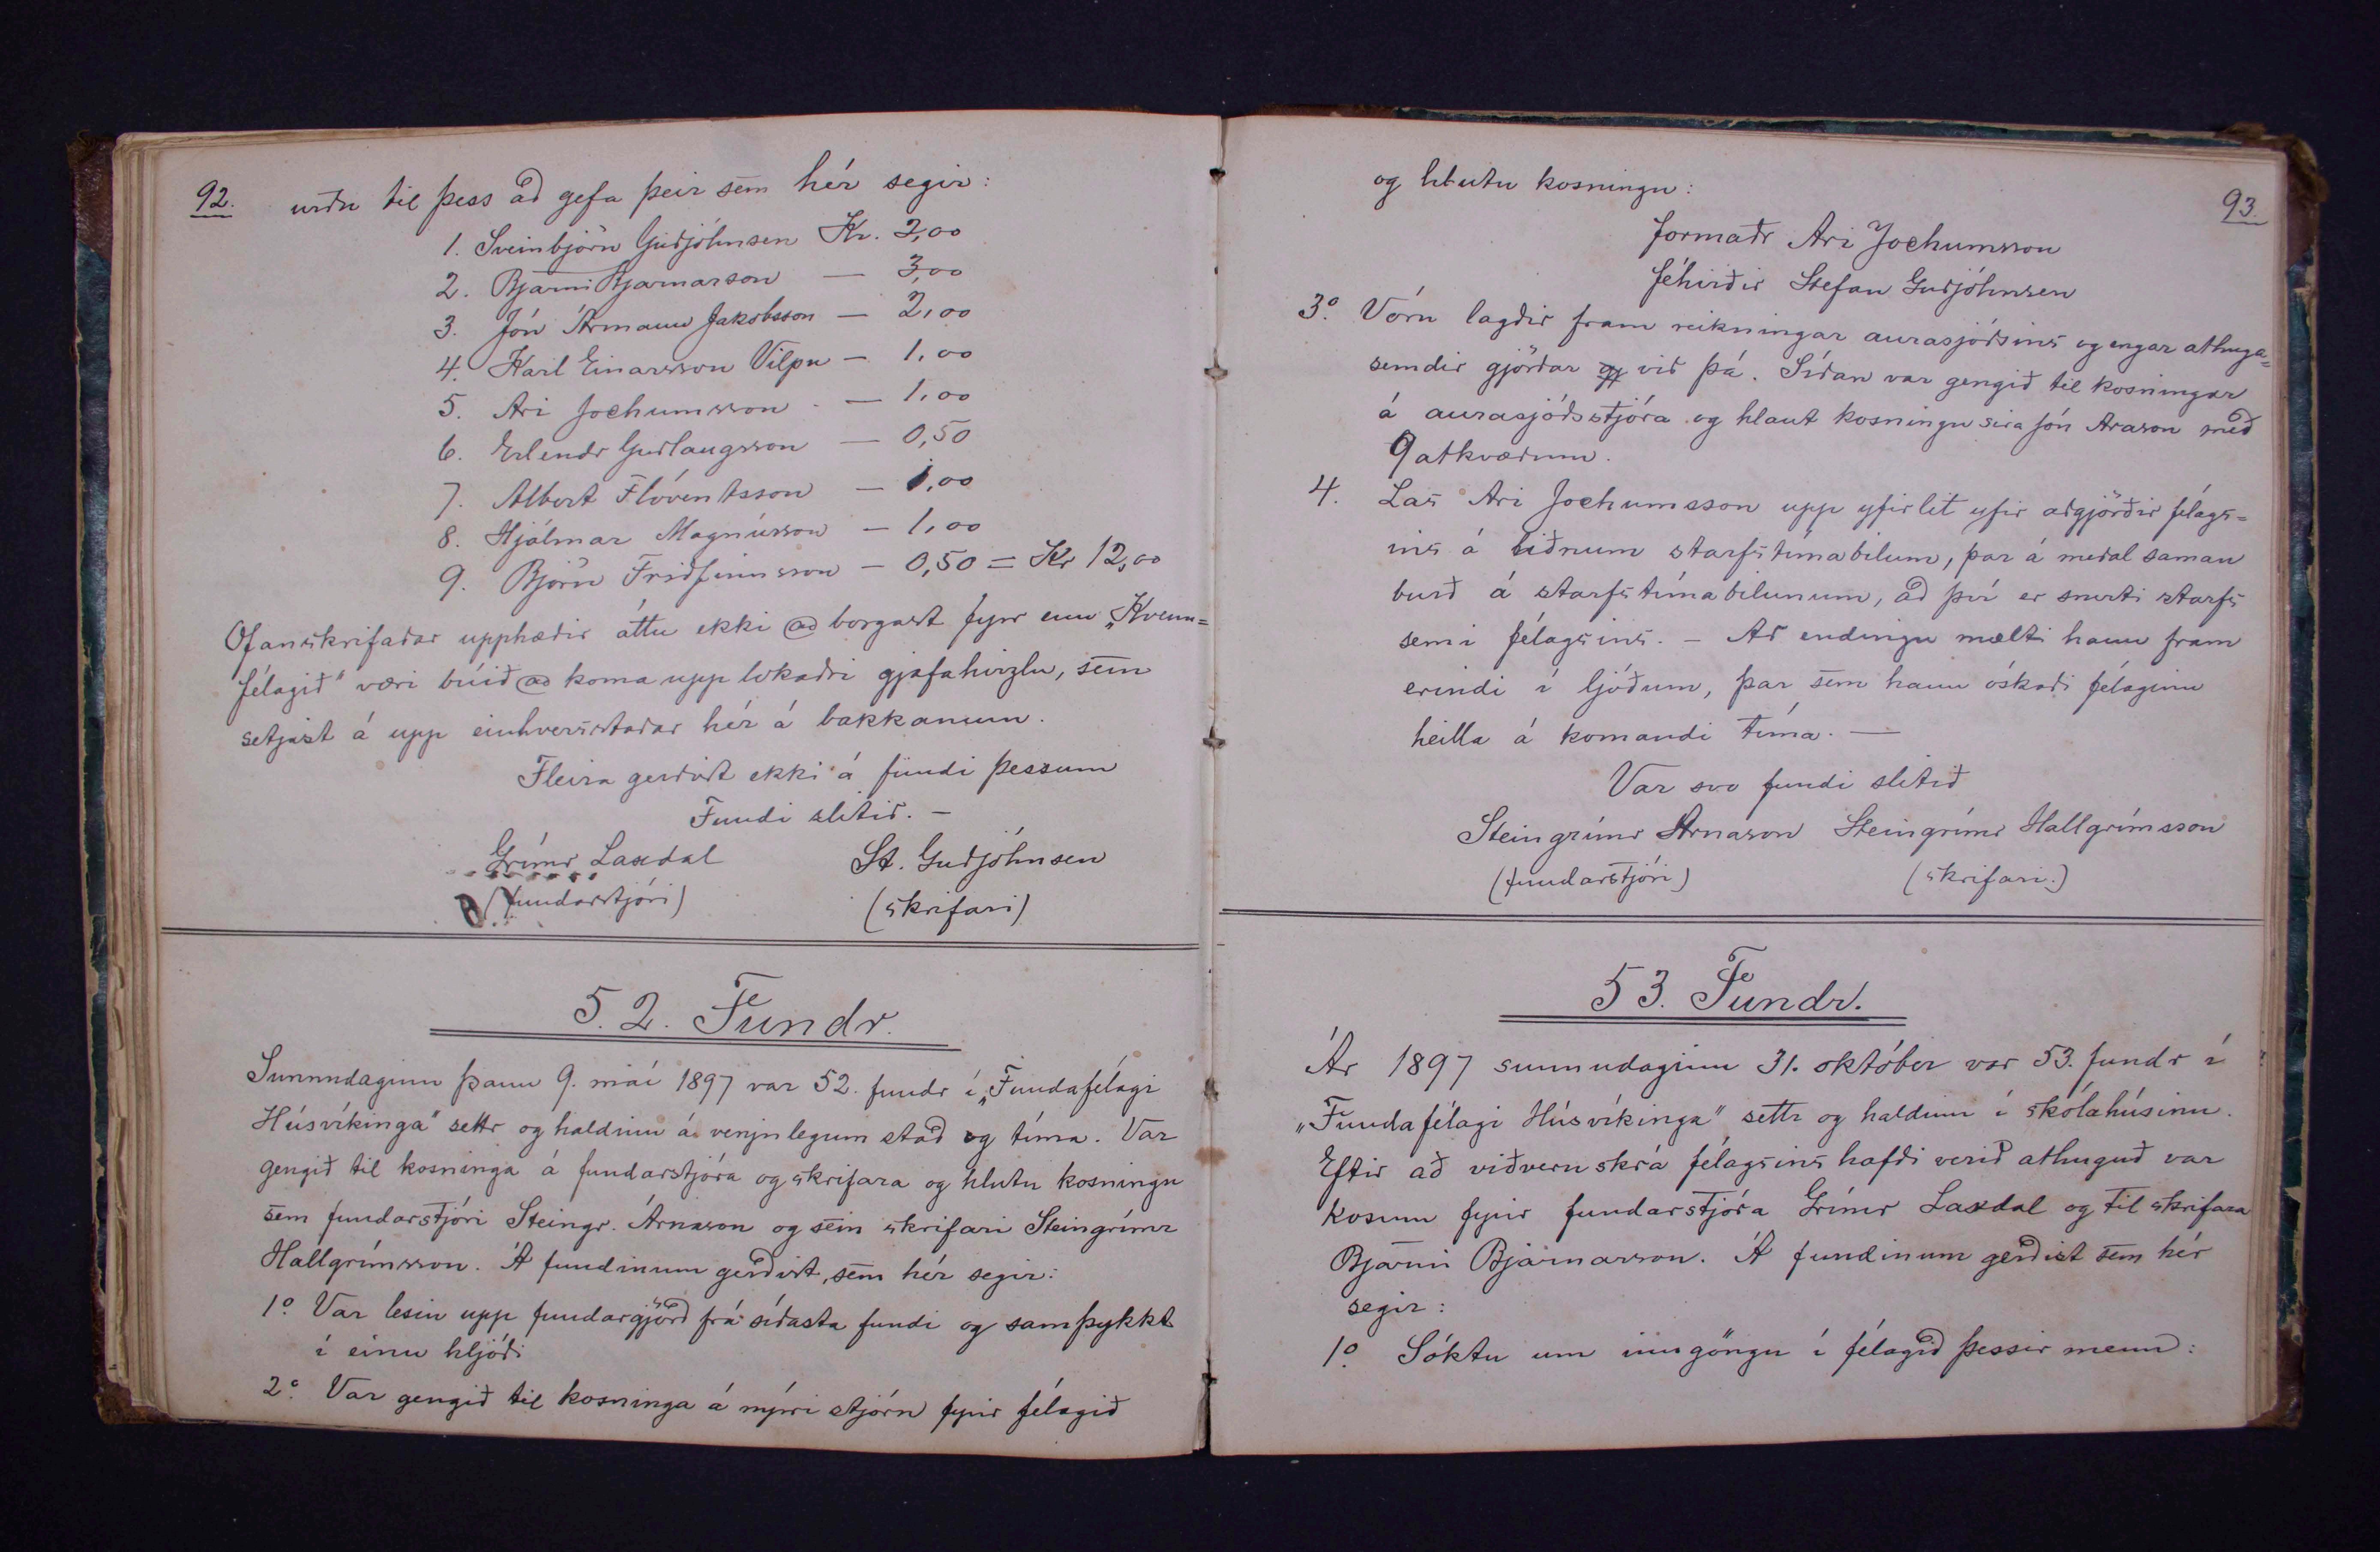 92.
urðu til þess að gefa þeir sem hér segir:
1. Sveinbjörn Guðjóhnsen Kr. 2,00
2. Bjarni Bjarnarson — 3,00
3. Jón Ármann Jakobsson — 2,00
4. Karl Einarsson Vilpu — 1,00
5. Ari Jochumsson — 1,00
6. Erlendr Guðlaugsson — 0,50
7. Albert Flóventsson — 1,00
8. Hjálmar Magnússon — 1,00
9. Björn Friðfinnsson — 0,50 = Kr 12,00
Ofanskrifaðar upphæðir áttu ekki að borgast fyr enn „Kvenn=
félagið" væri búið að koma upp lokaðri gjafahirzlu, sem
setjast á upp einhversstaðar hér á bakkanum.
Fleira gerðist ekki á fundi þessum
Fundi slitið. —
Grímr Laxdal St. Guðjóhnsen
(fundarstjóri) (skrifari)
52. Fundr.
Sunnudaginn þann 9. maí 1897 var 52. fundr í „Fundafélagi
Húsvíkinga" settr og haldinn á venjulegum stað og tíma. Var
gengið til kosninga á fundarstjóra og skrifara og hlutu kosningu
sem fundarstjóri Steingr. Árnason og sem skrifari Steingrímr
Hallgrímsson. Á fundinum gerðist, sem hér segir:
1º. Var lesin upp fundargjörð frá síðasta fundi og samþykkt
í einu hljóði
2º. Var gengið til kosninga á nýrri stjórn fyrir félagið
93.
og hlutu kosningu:
formaðr Ari Jochumsson
féhirðir Stefan Guðjóhnsen
3º. Vóru lagðir fram reikningar aurasjóðsins og engar athuga=
semdir gjörðar við þá. Síðan var gengið til kosningar
á aurasjóðsstjóra og hlaut kosningu síra Jón Arason með
9 atkvæðum.
4. Las Ari Jochumsson upp yfirlit yfir aðgjörðir félags=
ins á liðnum starfstímabilum, þar á meðal saman
burð á starfstímabilunum, að því er snerti starfs
semi félagsins. — Að endingu mælti hann fram
erindi í ljóðum, þar sem hann óskaði félaginu
heilla á komandi tíma. —
Var svo fundi slitið
Steingrímr Arnason Steingrímr Hallgrímsson
(fundarstjóri) (skrifari.)
53. Fundr.
Ár 1897 sunnudaginn 31. október var 53. fundr í
„Fundafélagi Húsvíkinga" settr og haldinn í skólahúsinu.
Eftir að viðveruskrá félagsins hafði verið athuguð var
kosinn fyrir fundarstjóra Grímr Laxdal og til skrifara
Bjarni Bjarnarson. Á fundinum gerðist sem hér
segir:
1º. Sóktu um inngöngu í félagið þessir menn: